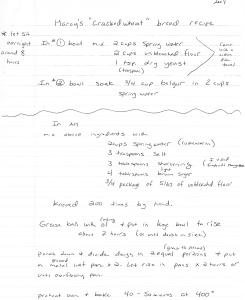 Marcy's "Cracked wheat" bread recipe
* let sit overnight around 8 hours
In #1 bowl mix 2 cups Spring water
2 cups unbleached flour
1 tsp dry yeast
(teaspoon)
Cover with a
In #2 bowl soak 3/4 cup bulgur in 2 cups
Spring water
In AM
mix above ingredients with
2 cups Spring water (lukewarm)
3 teaspoons Salt
3 tablespoons shortening
4 tablespoons brown sugar
3/4 package of 5 lbs of unbleached flour
Knead 200 times by hand.
Grease bowl with oil + put in large bowl to rise
about 2 hours (or until double in size)
Punch down & divide dough in 2 equal portions + put
in metal loaf pan x 2. Let rise in pans x 2 hours or
until overflowing pan.
preheat oven + bake 40-50 mins at 400°